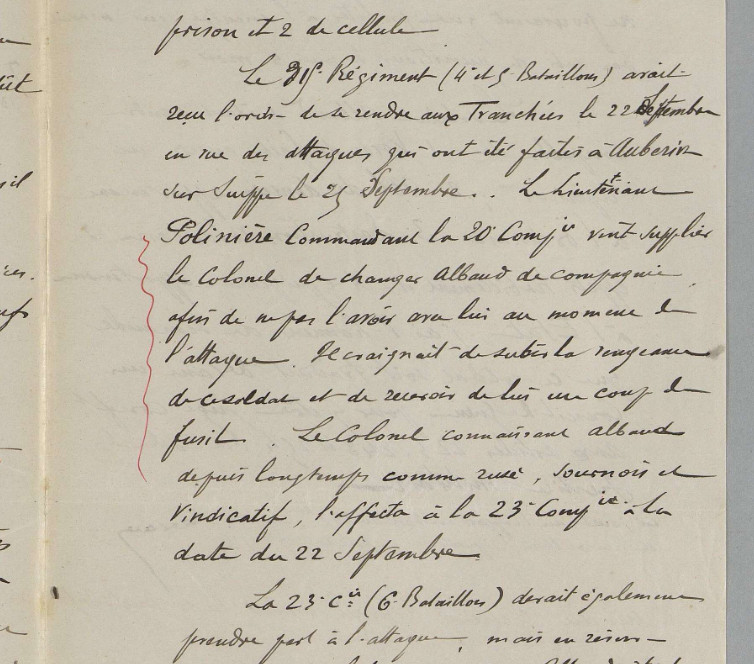 prison et 2 de cellule
Le 91e Régiment (4e et 5e Bataillons) avait
reçu l'ordre de se rendre aux Tranchées le 22 Septembre
en vue des attaques qui ont été faites à Auberive
sur Suippe le 25 Septembre.. Le Lieutenant
Polinière Commandant la 20e Compie vint supplier
le Colonel de changer Albaud de compagnie
afin de ne pas l'avoir avec lui au moment de
l'attaque. Il craignait de subir la vengeance
de ce soldat et de recevoir de lui un coup de
fusil. Le Colonel connaissant Albaud
depuis longtemps comme rusé, sournois et
vindicatif, l'affecta à la 23e Compie à la
date du 22 Septembre
La 23e Cie (6e Bataillon) devait également
prendre part à l'attaque, mais en réserve